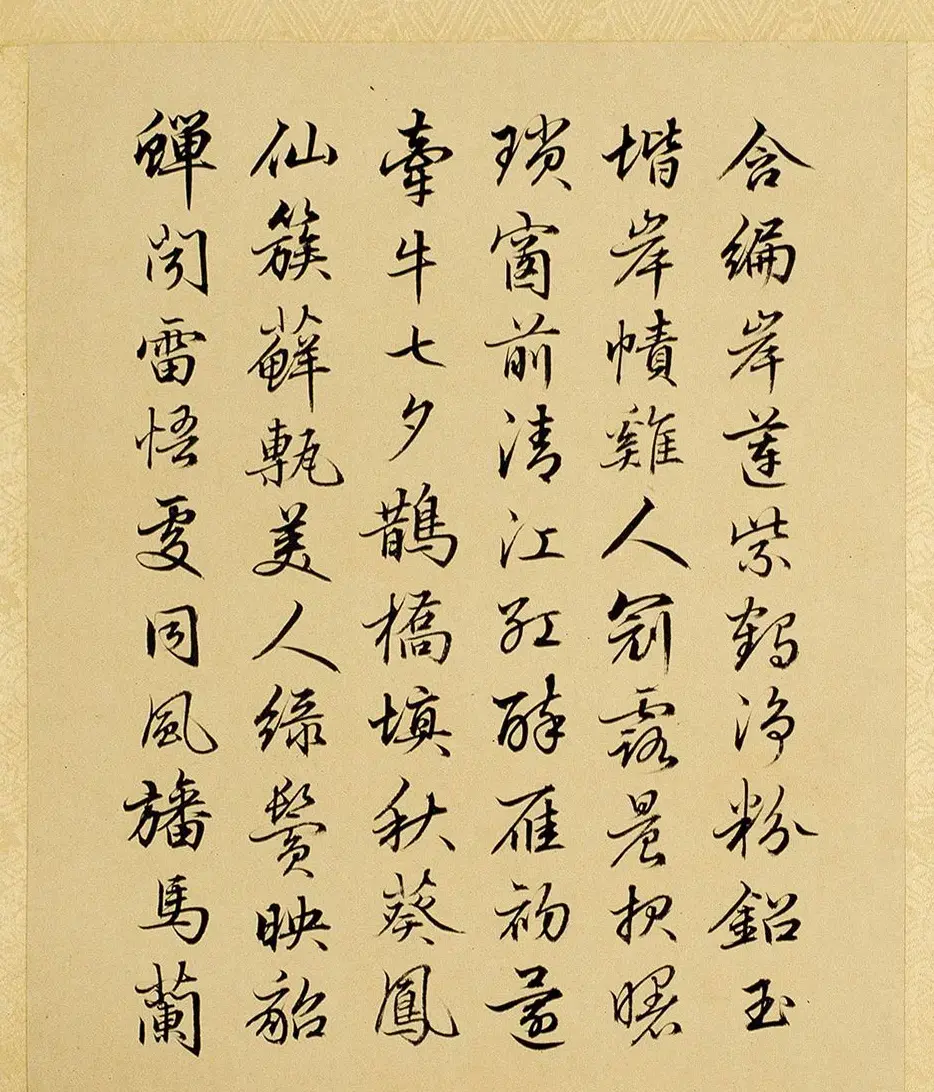 含編岸蓮紫鶴淨粉鉛玉
堦岸幘雞人冠露晨报曙
瑣窗前清江紅醉雁初還
牽牛七夕鵲橋填秋葵鳳
仙簇蘚甎美人綠鬢映貂
蟬聞雷悟處同風旛馬蘭